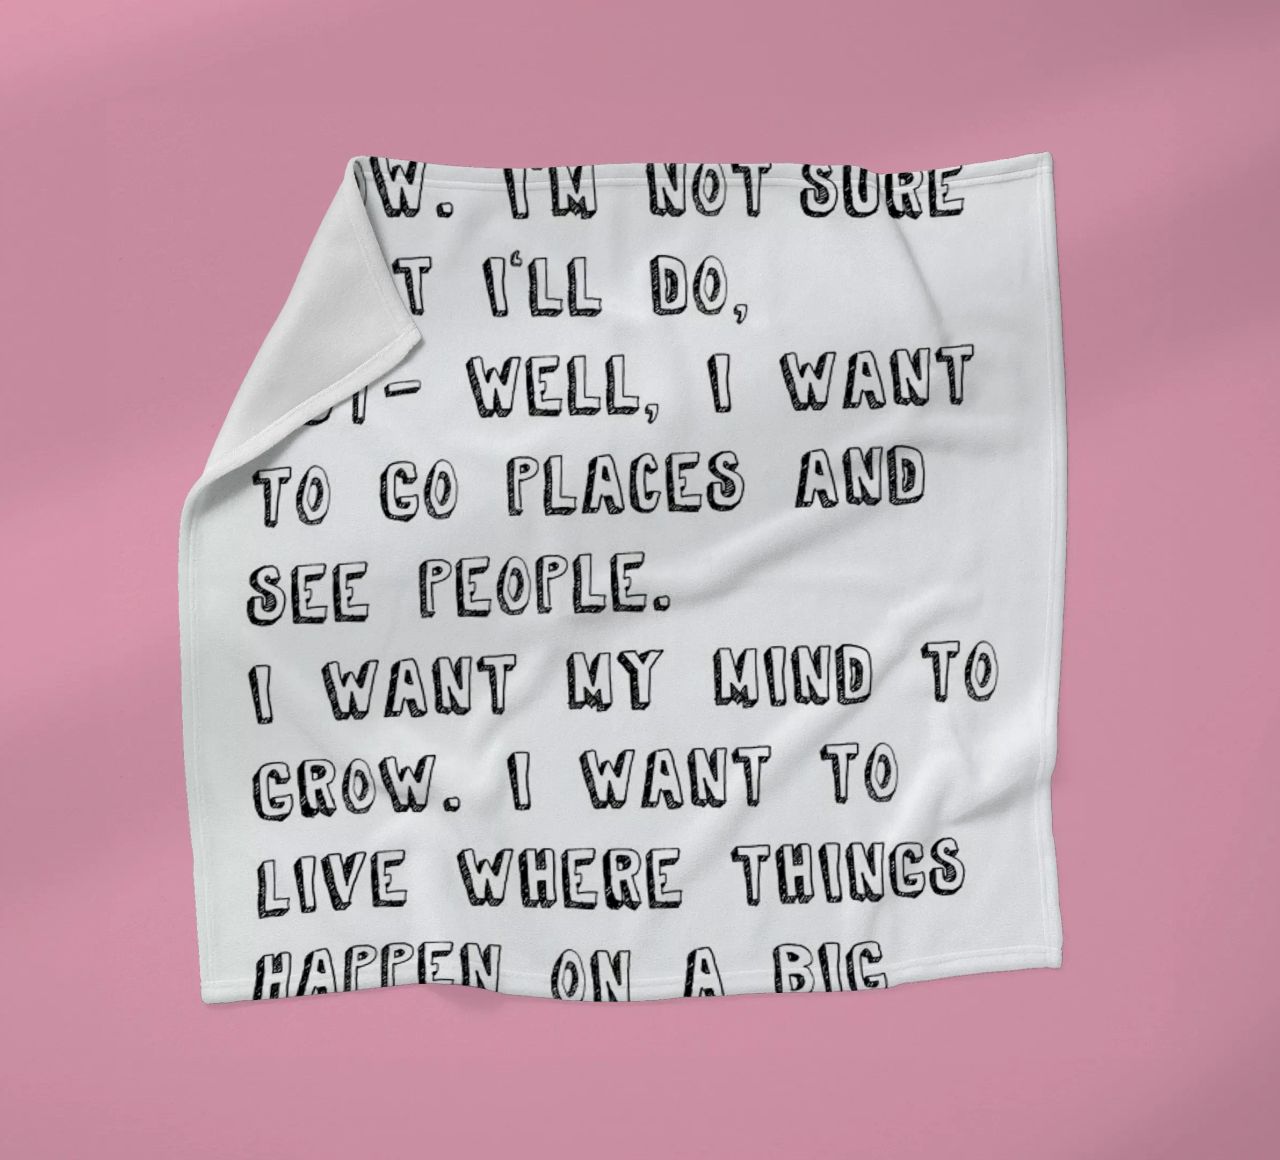 W. I'M NOT SURE
T I'LL DO,
- WELL, I WANT
TO GO PLACES AND
SEE PEOPLE.
I WANT MY MIND TO
GROW. I WANT TO
LIVE WHERE THINGS
HAPPEN ON A BIG